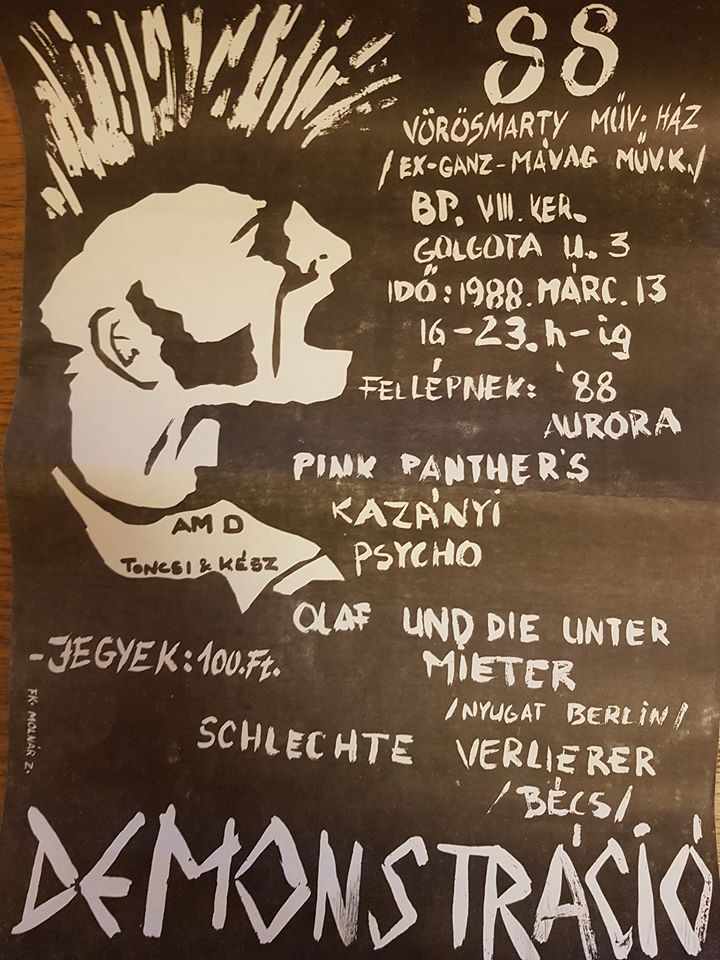 '88
VÖRÖSMARTY MŰV. HÁZ
/EX-GANZ-MÁVAG MŰV.K./
BP. VIII. KER.
GOLGOTA U. 3
IDŐ: 1988. MÁRC. 13
16-23. h-ig
FELLÉPNEK: '88
AURORA
PINK PANTHER'S
KAZÁNYI
PSYCHO
AMD
TONCSI & KÉSZ
OLAF UND DIE UNTER
MIETER
/NYUGAT BERLIN/
-JEGYEK: 100.Ft.
SCHLECHTE VERLIERER
/BÉCS/
FK. MOLNÁR Z.
DEMONSTRÁCIÓ